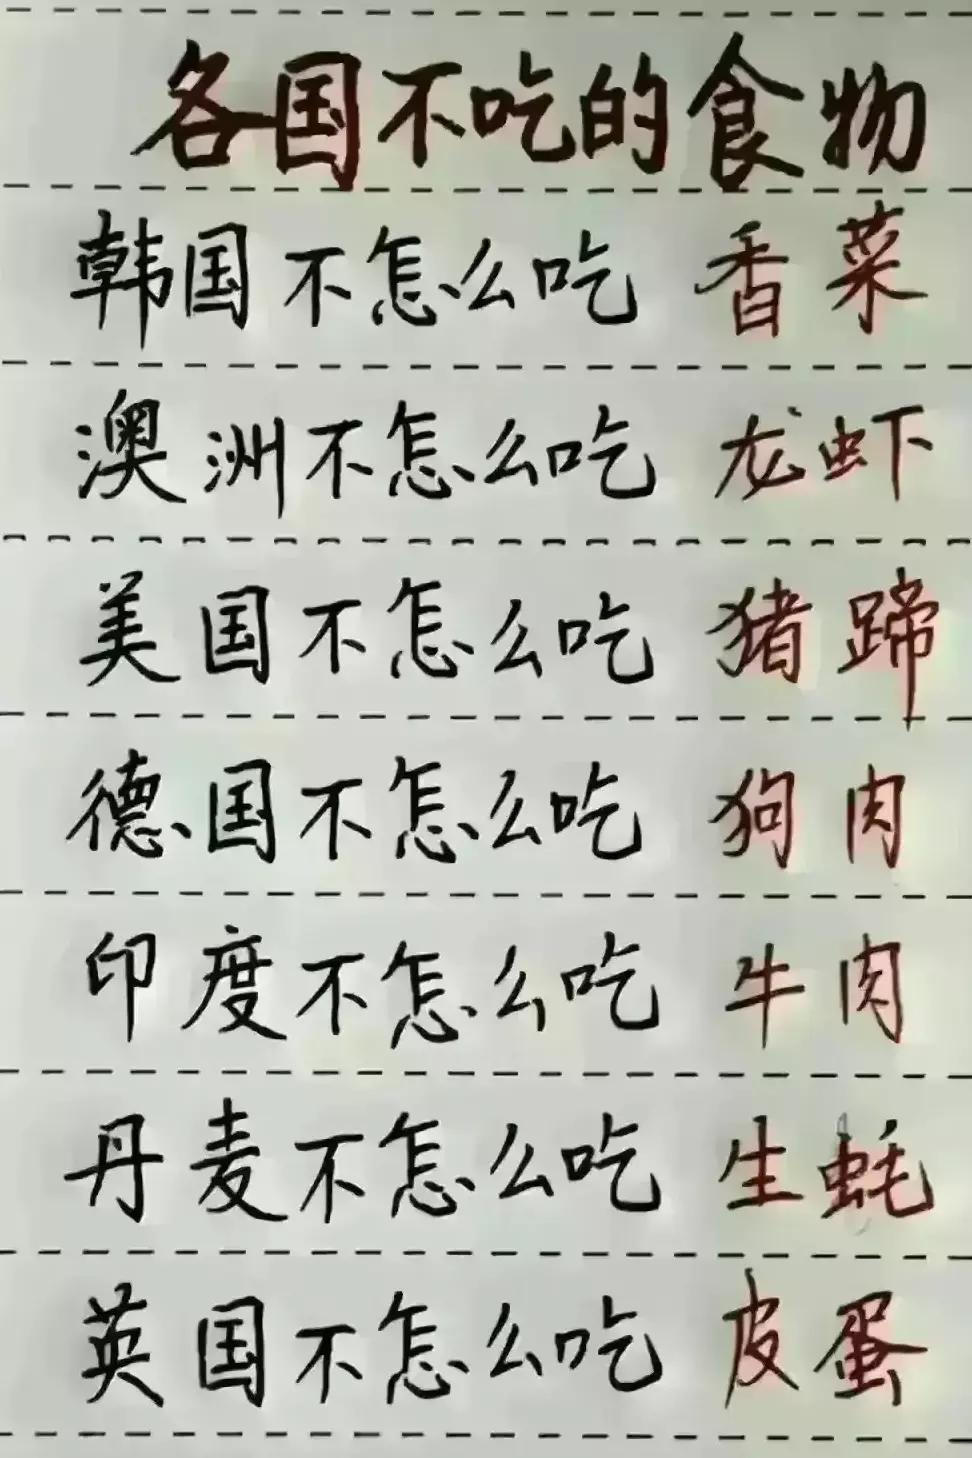 各国不吃的食物
韩国不怎么吃 香菜
澳洲不怎么吃 龙虾
美国不怎么吃 猪蹄
德国不怎么吃 狗肉
印度不怎么吃 牛肉
丹麦不怎么吃 生蚝
英国不怎么吃 皮蛋